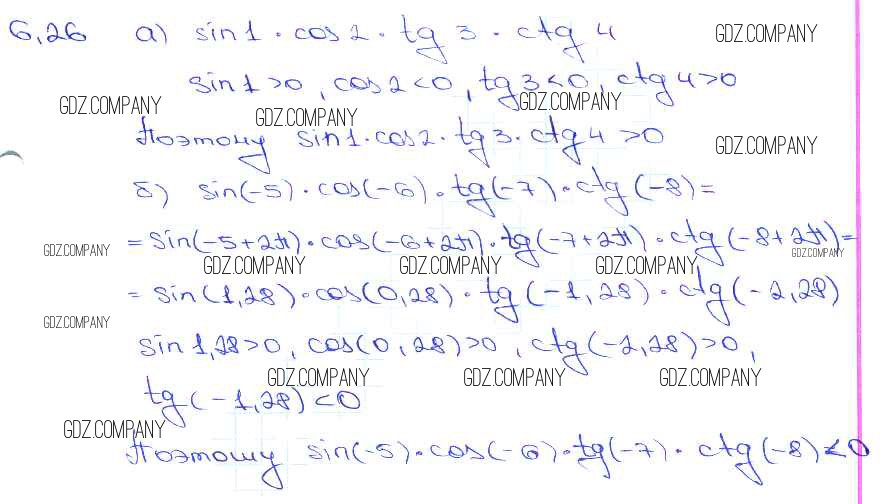 6,26 а) sin1 · cos2 · tg 3 · ctg 4
GDZ.COMPANY
sin1 >0, cos2 <0, tg3 <0, ctg 4 >0
GDZ.COMPANY GDZ.COMPANY GDZ.COMPANY
Поэтому sin1·cos2·tg3·ctg4 >0
GDZ.COMPANY
б) sin(-5)·cos(-6)·tg(-7)·ctg(-8)=
= sin(-5+2π)·cos(-6+2π)·tg(-7+2π)·ctg(-8+2π)=
GDZ.COMPANY GDZ.COMPANY GDZ.COMPANY GDZ.COMPANY GDZ.COMPANY
= sin(1,28)·cos(0,28)·tg(-1,28)·ctg(-2,28)
GDZ.COMPANY
sin1,28>0, cos(0,28)>0, ctg(-2,28)>0,
GDZ.COMPANY GDZ.COMPANY GDZ.COMPANY
tg(-1,28)<0
GDZ.COMPANY
Поэтому sin(-5)·cos(-6)·tg(-7)·ctg(-8)<0